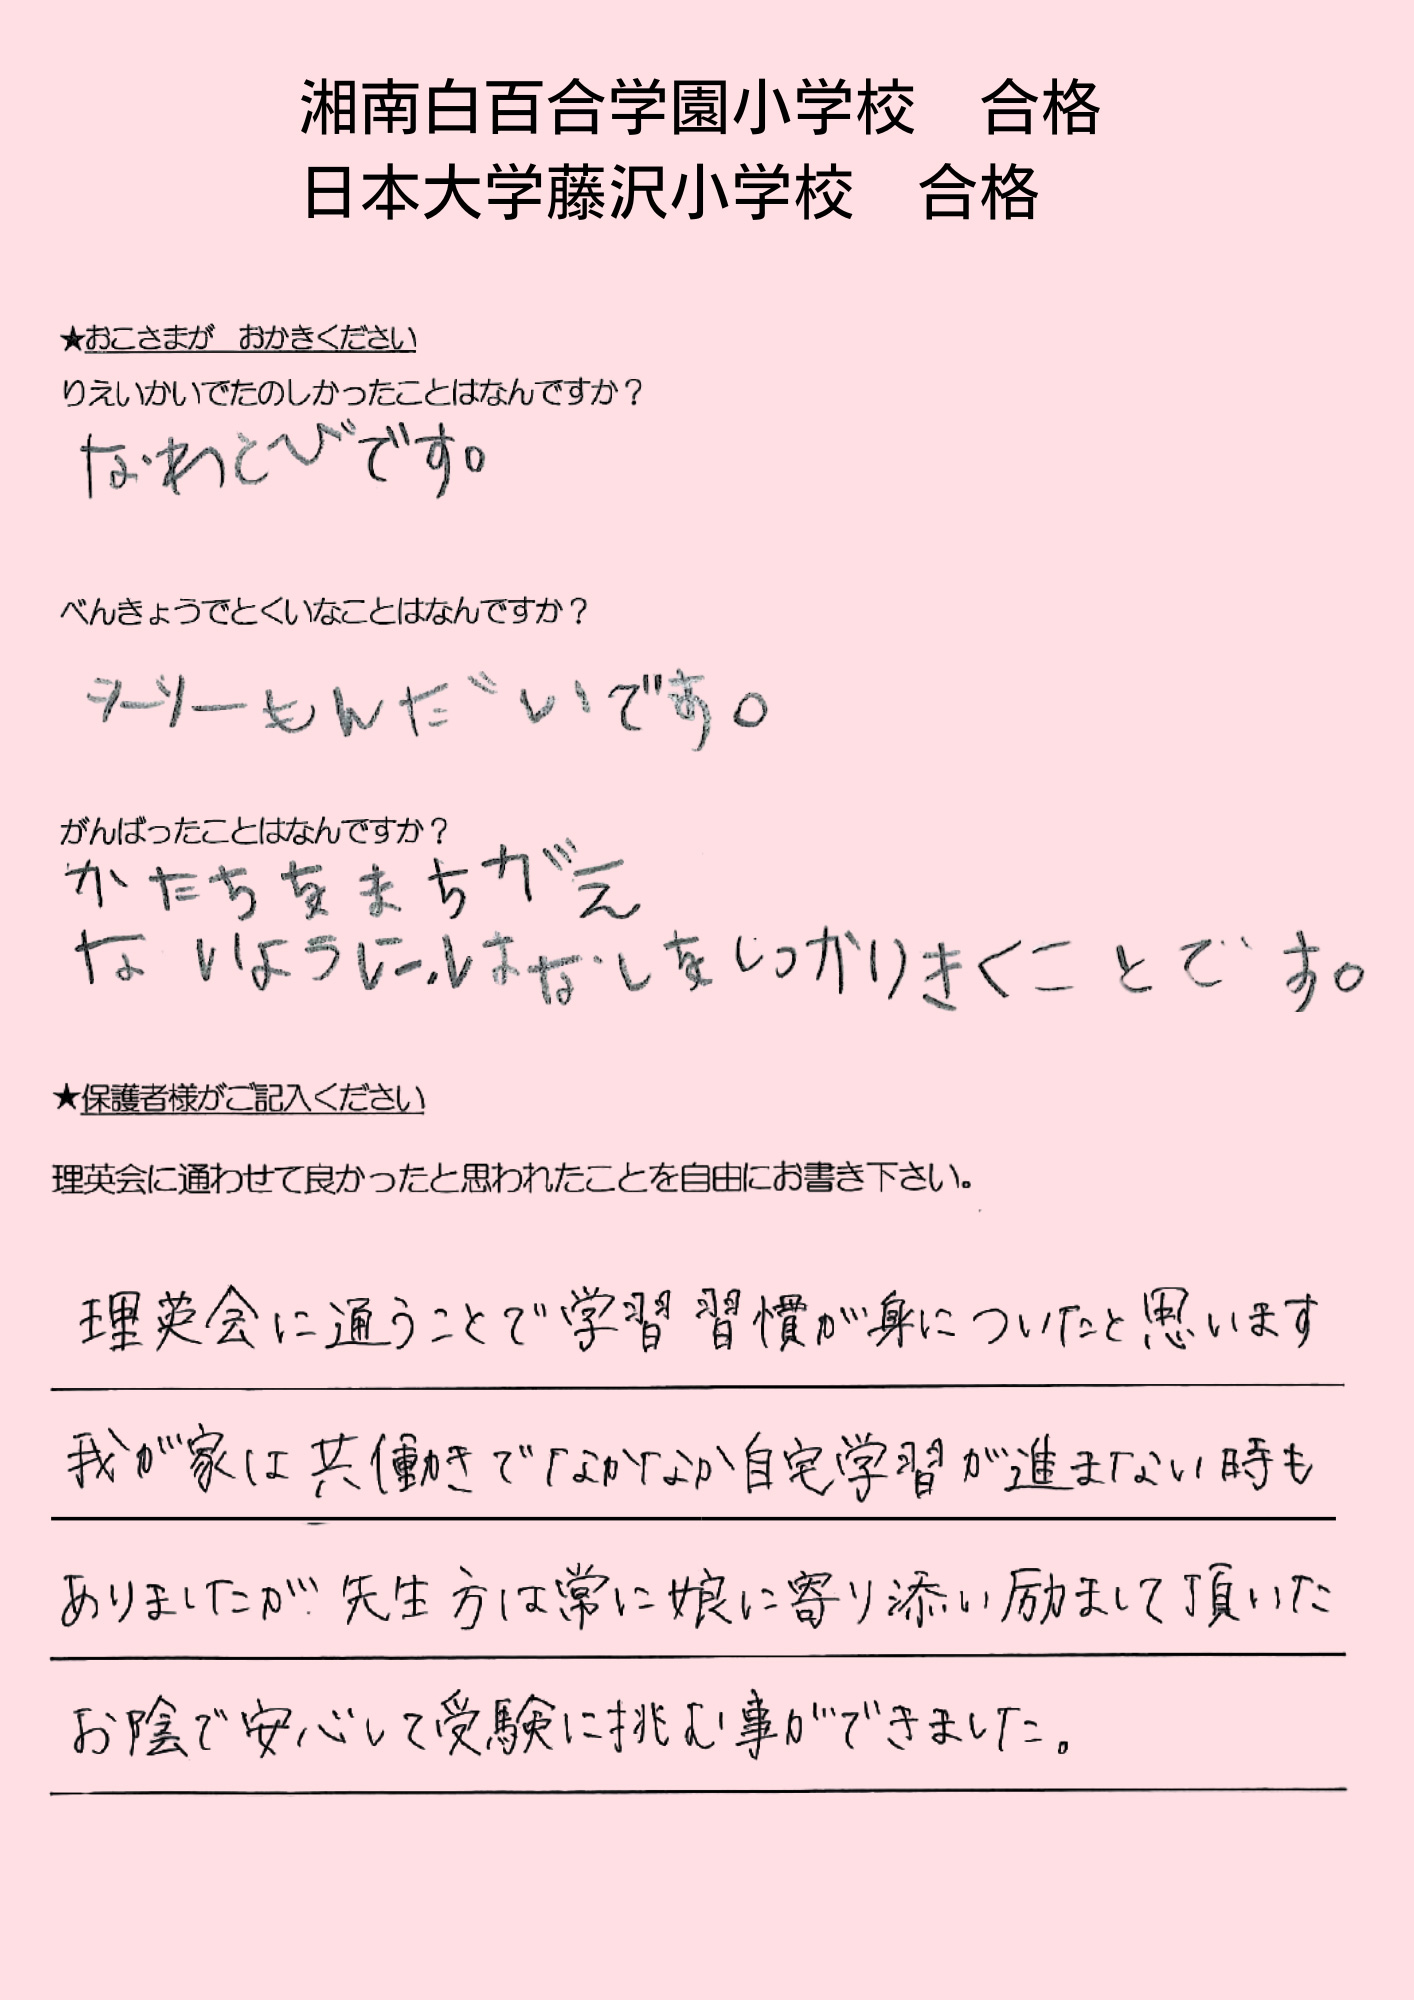 湘南白百合学園小学校　合格
日本大学藤沢小学校　合格
★おこさまが　おかきください
りえいかいでたのしかったことはなんですか？
なわとびです。
べんきょうでとくいなことはなんですか？
シーソーもんだいです。
がんばったことはなんですか？
かたちをまちがえ
ないように、はなしをしっかりきくことです。
★保護者様がご記入ください
理英会に通わせて良かったと思われたことを自由にお書き下さい。
理英会に通うことで学習習慣が身についたと思います
我が家は共働きでなかなか自宅学習が進まない時も
ありましたが先生方は常に娘に寄り添い励まして頂いた
お陰で安心して受験に挑む事ができました。